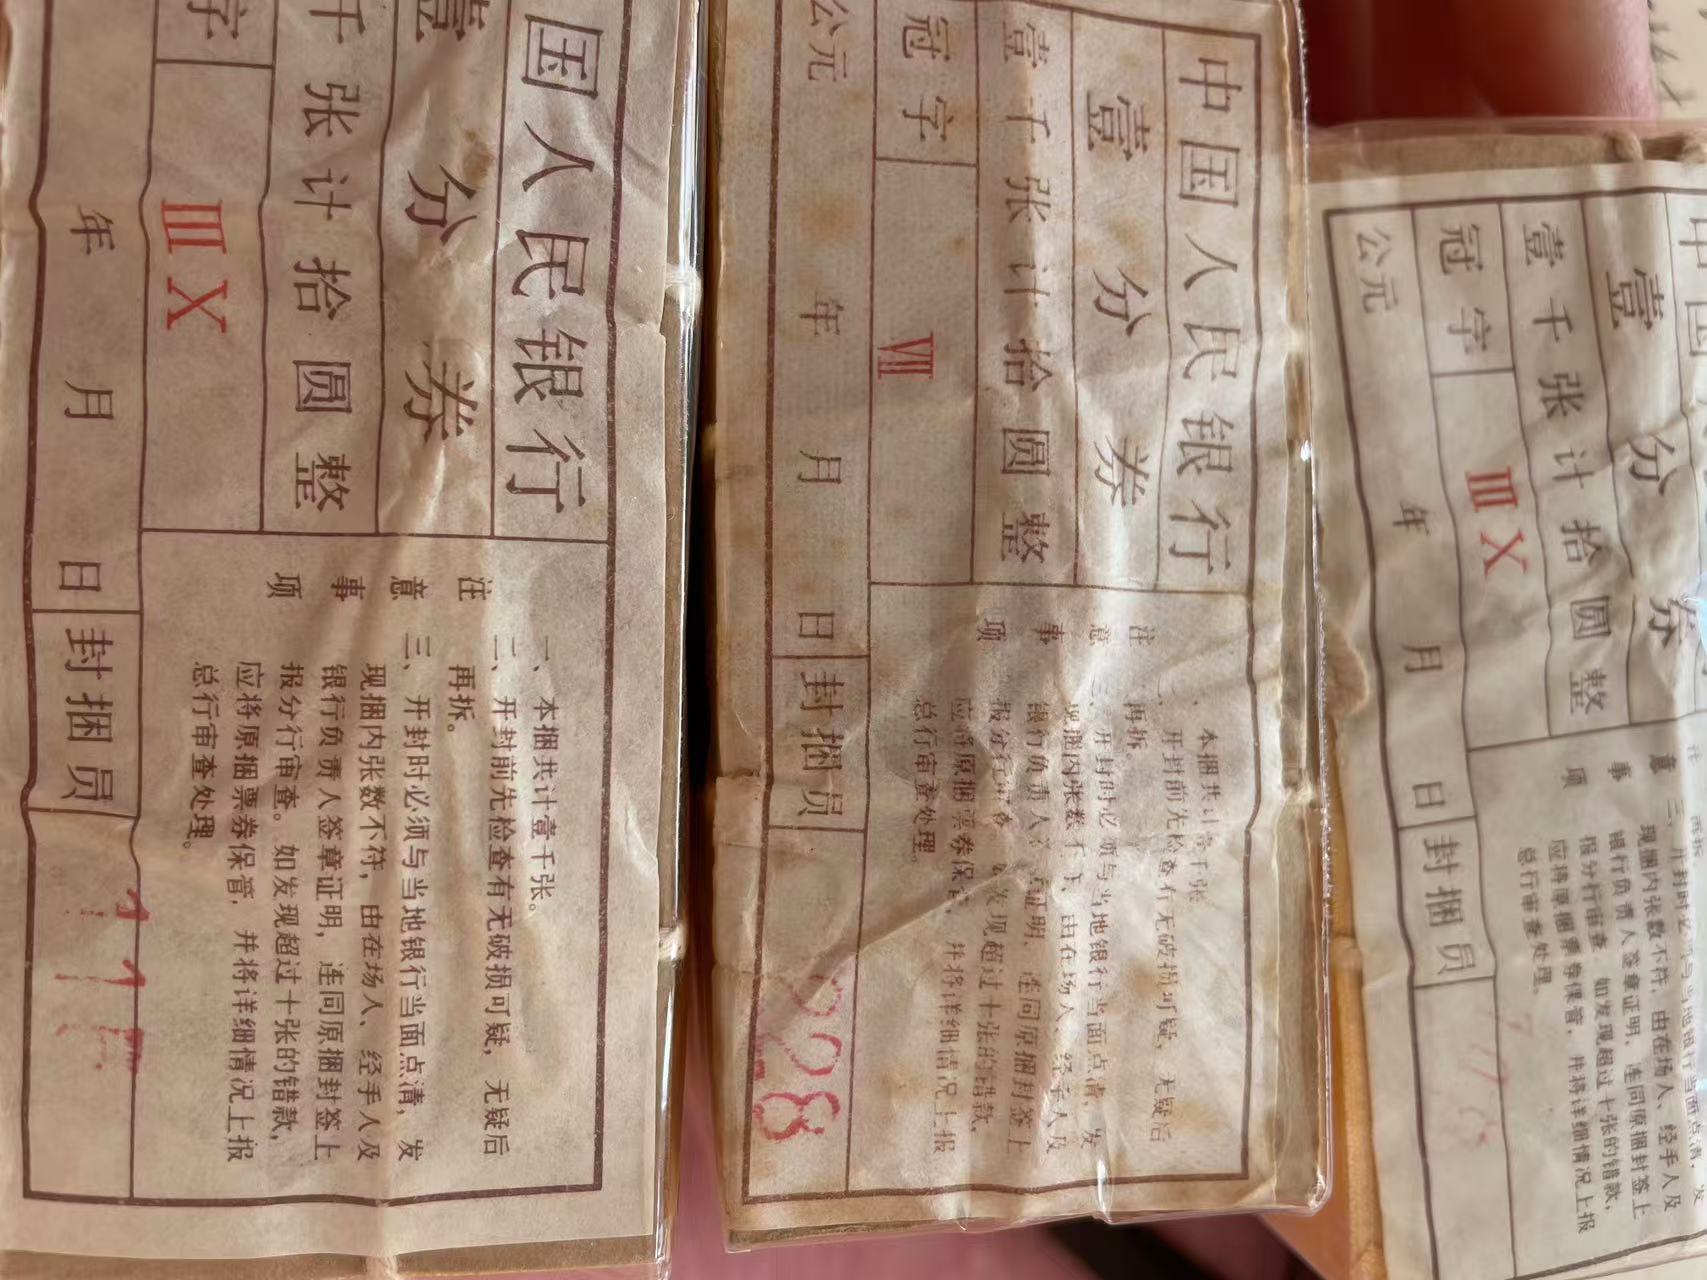 国人民银行
壹分券
千张计拾圆整
字 ⅢⅩ
年 月 日 封捆员
注意事项
一、本捆共计壹千张。
二、开封前先检查有无破损可疑，无疑后
再拆。
三、开封时必须与当地银行当面点清，发
现捆内张数不符，由在场人、经手人及
银行负责人签章证明，连同原捆封签上
报分行审查。如发现超过十张的错款，
应将原捆票券保管，并将详细情况上报
总行审查处理。
中国人民银行
壹分券
壹千张计拾圆整
冠字 Ⅶ
公元 年 月 日 封捆员
828
注意事项
一、本捆共计壹千张
二、开封前先检查有无破损可疑，无疑后
再拆。
三、开封时必须与当地银行当面点清，发
现捆内张数不符，由在场人、经手人及
银行负责人 证明，连同原捆封签上
报分行审查 发现超过十张的错款，
应将原捆票券保管，并将详细情况上报
总行审查处理。
中国
壹分券
壹千张计拾圆整
冠字 ⅢⅩ
公元 年 月 日 封捆员
注意事项
三、开封时必须与当地银行当面点清，发
现捆内张数不符，由在场人、经手人及
银行负责人签章证明，连同原捆封签上
报分行审查。如发现超过十张的错款，
应将原捆票券保管，并将详细情况上报
总行审查处理。